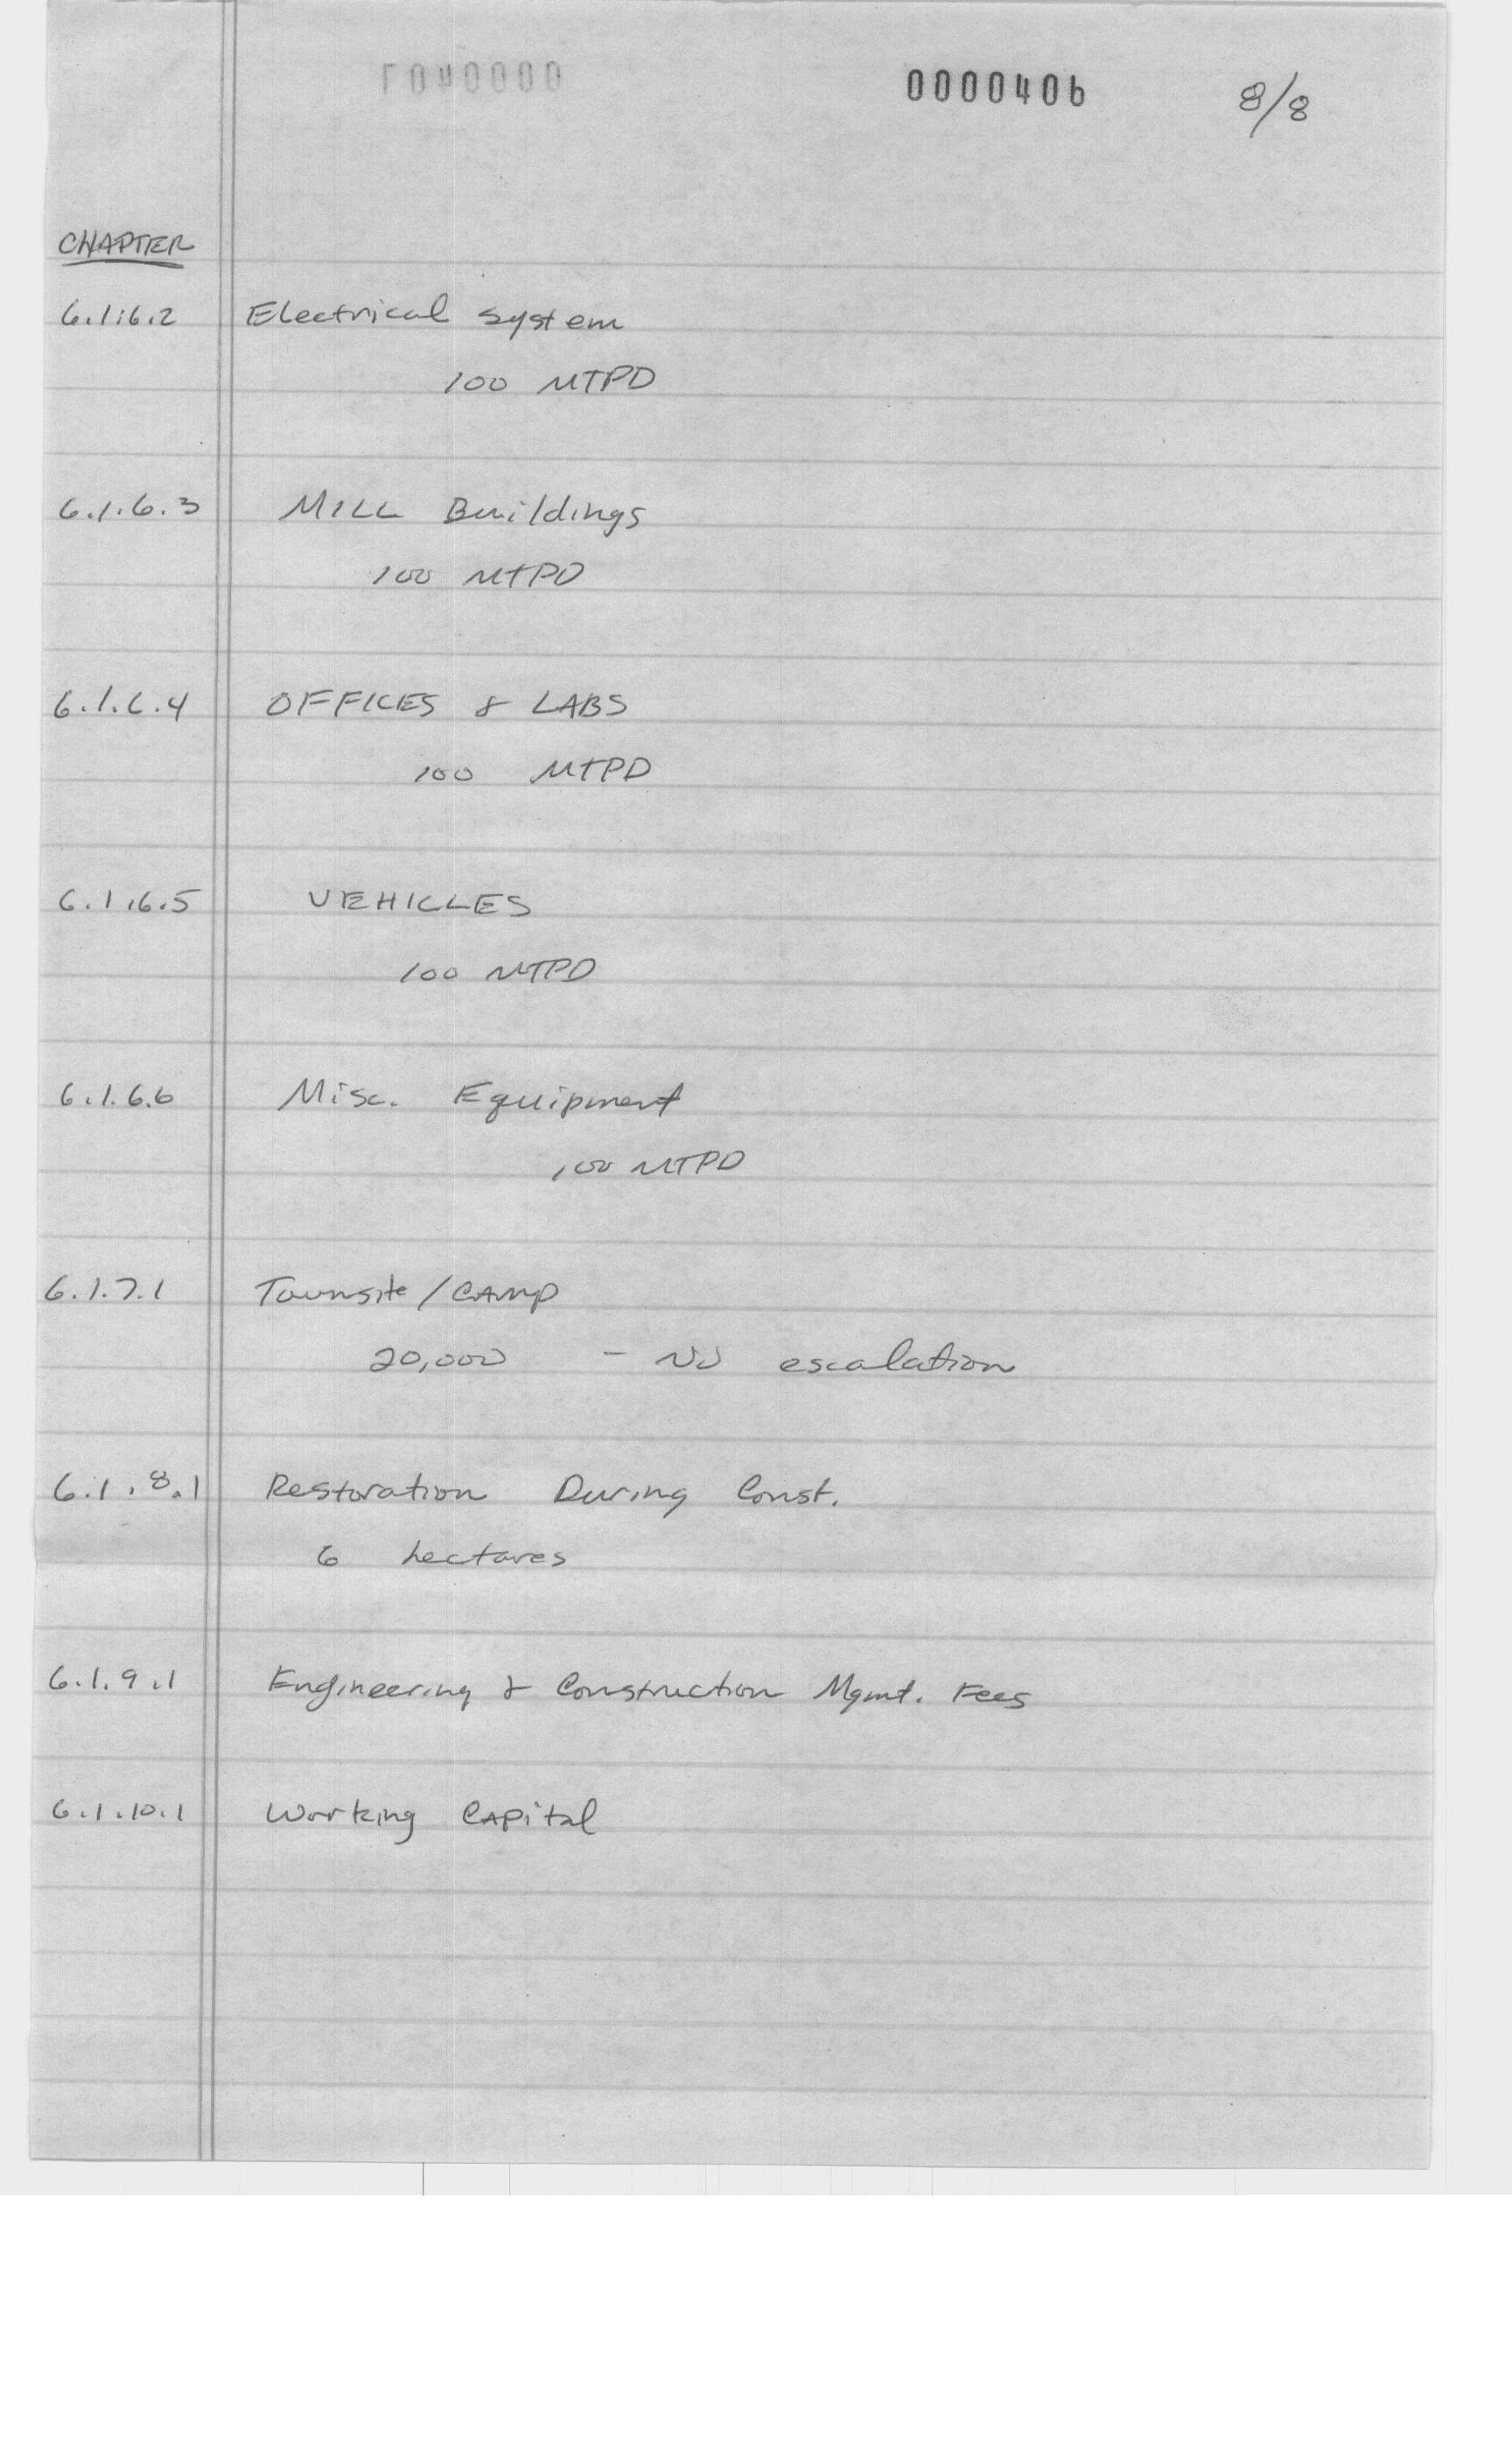 0000406 8/8
CHAPTER
6.1.6.2 Electrical system
100 MTPD
6.1.6.3 MILL Buildings
100 MTPD
6.1.6.4 OFFICES & LABS
100 MTPD
6.1.6.5 VEHICLES
100 MTPD
6.1.6.6 Misc. Equipment
100 MTPD
6.1.7.1 Townsite/CAMP
20,000 - NO escalation
6.1.8.1 Restoration During Const.
6 hectares
6.1.9.1 Engineering & Construction Mgmt. Fees
6.1.10.1 Working CAPital